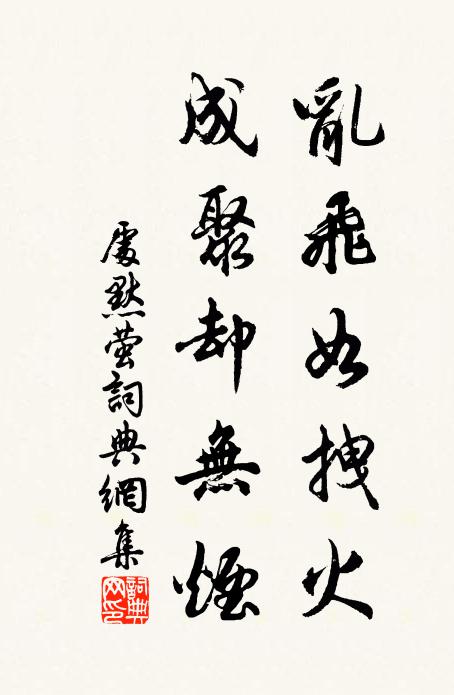 亂飛如拽火
成聚却無煙
處默螢詞典網集
詞典
网印